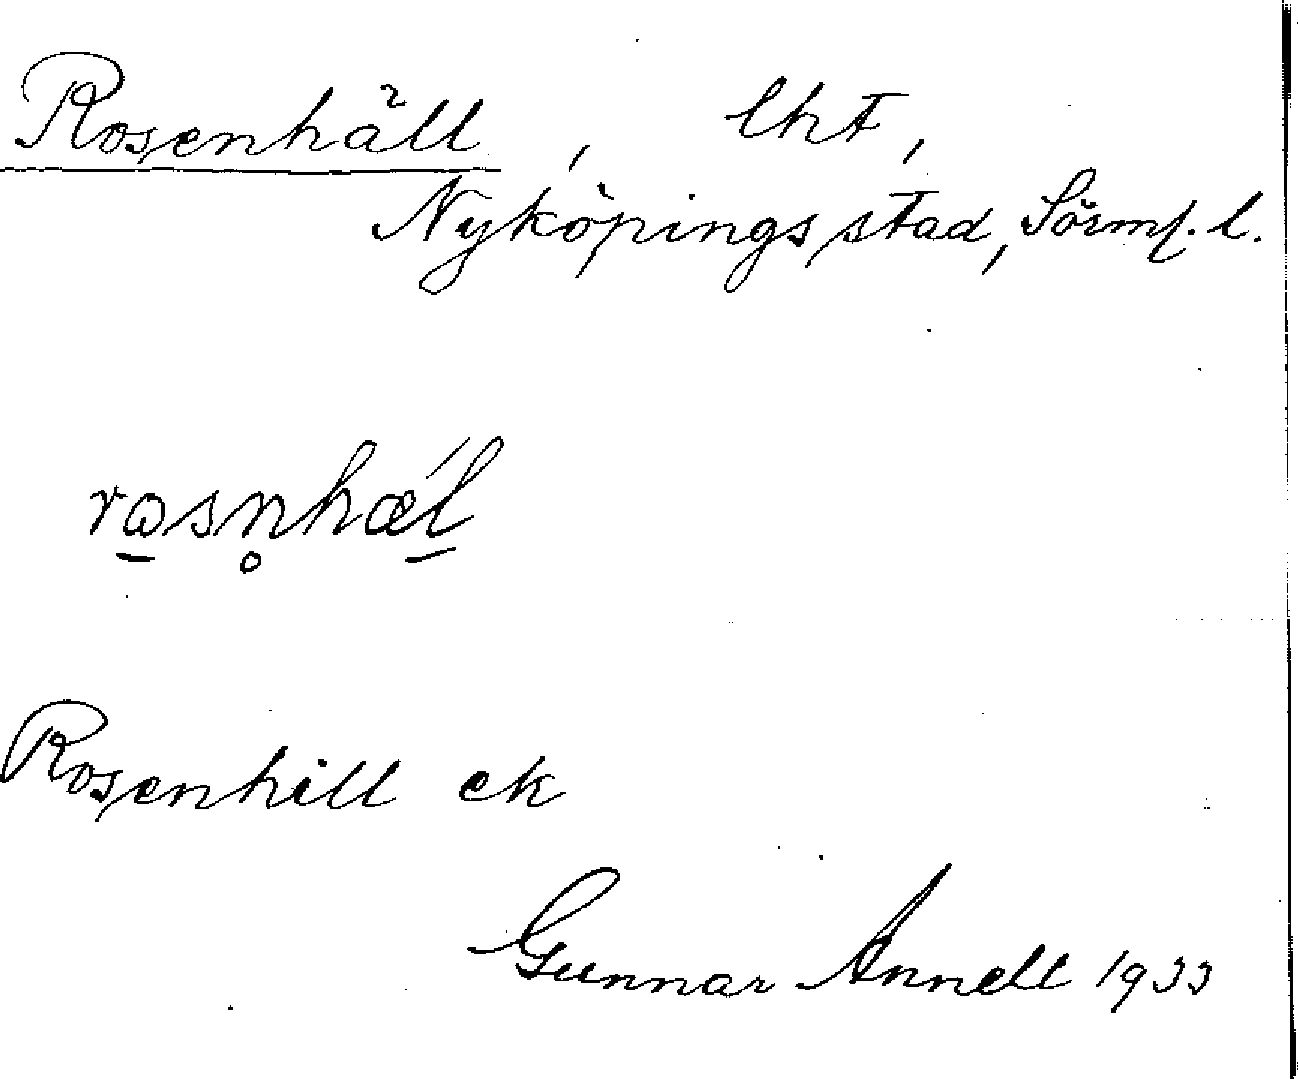 Rosenhäll, lht,
Nyköpings stad, Sörml. l.
rɷsn̥hæ̀l
Rosenhill ek
Gunnar Annell 1933